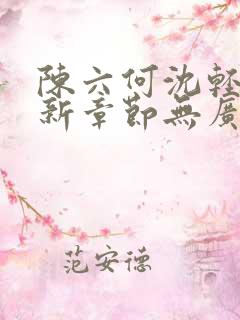 陳六何沈軽
新章節無廣
范安德